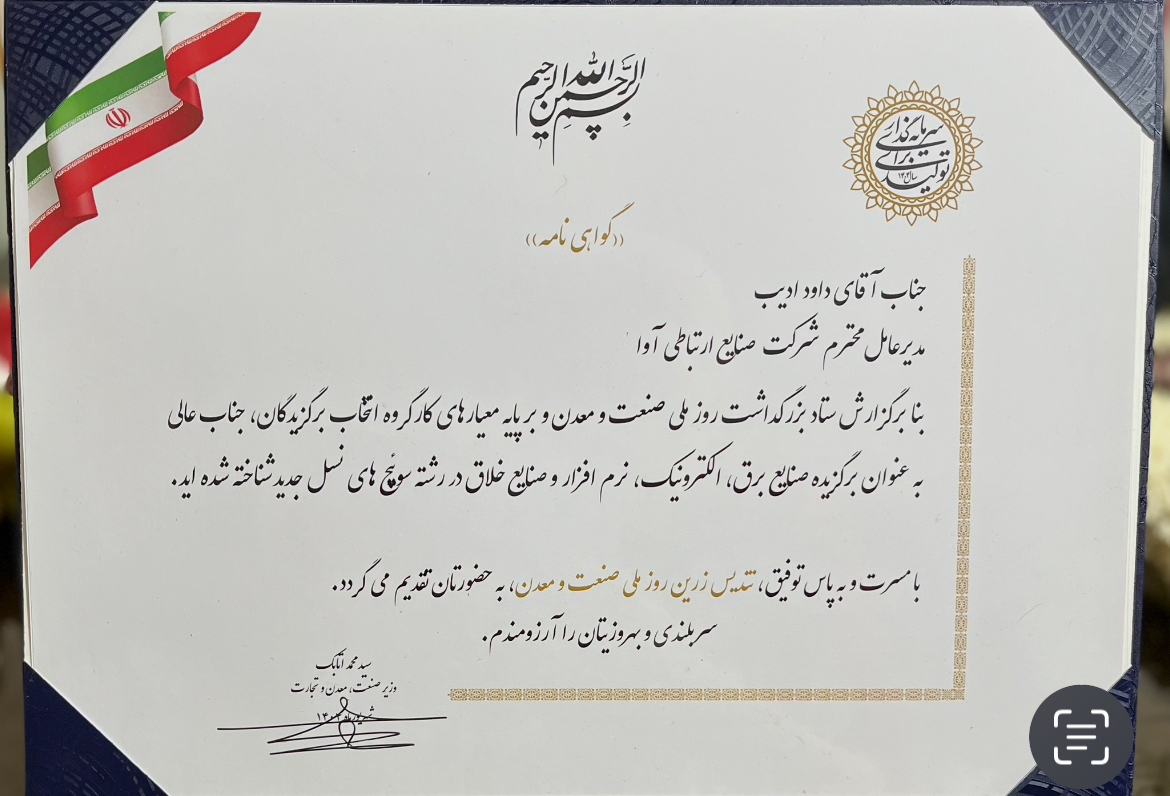 بسم الله الرحمن الرحیم
سرمایه‌گذاری
برای
تولید
سال ۱۴۰۴
((گواهی نامه))
جناب آقای داود ادیب
مدیرعامل محترم شرکت صنایع ارتباطی آوا
بنا برگزارش ستاد بزرگداشت روز ملی صنعت و معدن و بر پایه معیارهای کارگروه انتخاب برگزیدگان، جناب عالی
به عنوان برگزیده صنایع برق، الکترونیک، نرم افزار و صنایع خلاق در رشته سوئیچ های نسل جدید شناخته شده اید.
با مسرت و به پاس توفیق، تندیس زرین روز ملی صنعت و معدن، به حضورتان تقدیم می گردد.
سربلندی و بهروزیتان را آرزومندم.
سید محمد اتابک
وزیر صنعت، معدن و تجارت
شهریور ماه ۱۴۰۴